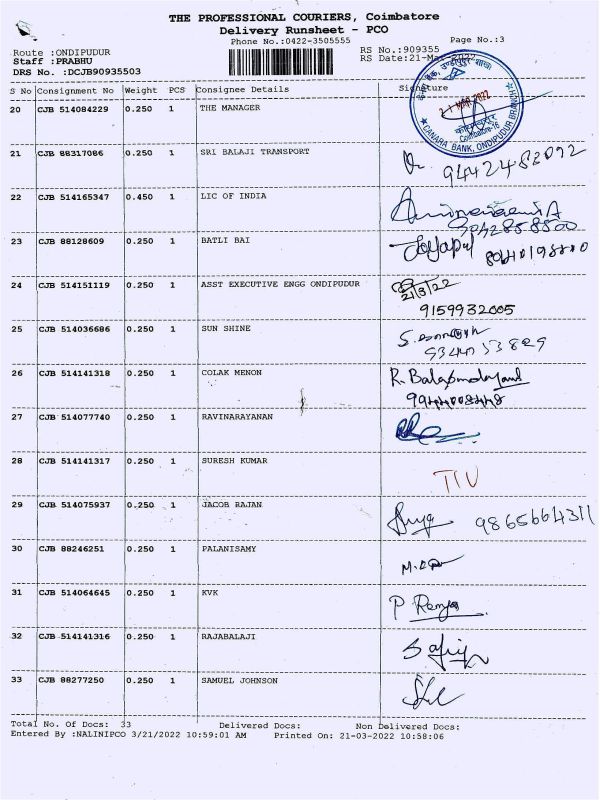 THE PROFESSIONAL COURIERS, Coimbatore
Delivery Runsheet - PCO
Phone No.:0422-3505555 Page No.:3
Route :ONDIPUDUR RS No.:909355
Staff :PRABHU RS Date:21-Mar-2022
DRS No. :DCJB90935503
S No Consignment No Weight PCS Consignee Details Signature
20 CJB 514084229 0.250 1 THE MANAGER
21 MAR 2022
Coimbatore-16
CANARA BANK, ONDIPUDUR BRANCH
21 CJB 88317086 0.250 1 SRI BALAJI TRANSPORT
9442482092
22 CJB 514165347 0.450 1 LIC OF INDIA
9042858500
23 CJB 88128609 0.250 1 BATLI BAI
24 CJB 514151119 0.250 1 ASST EXECUTIVE ENGG ONDIPUDUR
21/3/22
9159932005
25 CJB 514036686 0.250 1 SUN SHINE
26 CJB 514141318 0.250 1 COLAK MENON
27 CJB 514077740 0.250 1 RAVINARAYANAN
28 CJB 514141317 0.250 1 SURESH KUMAR
29 CJB 514075937 0.250 1 JACOB RAJAN
9865664311
30 CJB 88246251 0.250 1 PALANISAMY
31 CJB 514064645 0.250 1 KVK
P Ramya
32 CJB 514141316 0.250 1 RAJABALAJI
33 CJB 88277250 0.250 1 SAMUEL JOHNSON
Total No. Of Docs: 33 Delivered Docs: Non Delivered Docs:
Entered By :NALINIPCO 3/21/2022 10:59:01 AM Printed On: 21-03-2022 10:58:06